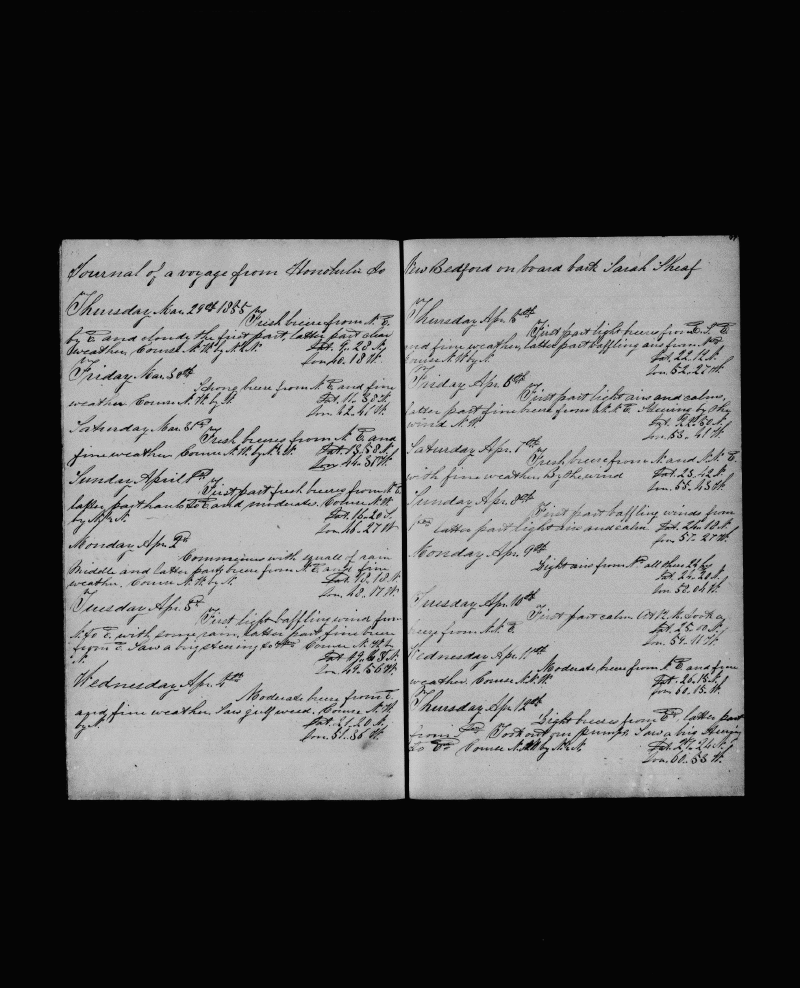 Journal of a voyage from Honolulu to
Thursday Mar. 29th 1855
Fresh breese from N. E.
by E and cloudy the first part, latter part clear
weather. Course N. W. by N. Lat. 9..28 N.
Lon. 40..18 W.
Friday Mar. 30th
Strong breese from N. E. and fine
weather Course N. W. by N. Lat. 11..38 N.
Lon. 42..41 W.
Saturday Mar. 31st
Fresh breese from N. E. and
fine weather. Course N. W. by N. Lat. 13..58 N.
Lon. 44..31 W.
Sunday April 1st
First part fresh breese from N. E.
latter part and moderate. Course N. W.
by N. Lat. 16..20
Lon. 46..27 W.
Monday Apr. 2d
Commences with squalls of rain
Middle and latter part breese from N. E. and fine
weather. Course N. W. by N.
Lon. 48..17 W.
Tuesday Apr. 3d
First light baffling wind from
N. to E. with some rain, latter part fine breese
from E. Saw a brig steering to Course N. W. by
N. Lat. 19..
Lon. 49..56 W.
Wednesday Apr. 4th
Moderate breese from E.
and fine weather. Saw gulf weed. Course N. W.
by N. Lat. 21..20 N.
Lon. 51..36 W.
New Bedford on board bark Sarah Sheaf
Thursday Apr. 5th
First part light breese from E. S. E.
and fine weather, latter part baffling airs from
Course N. W. by N. Lat. 22..12 N.
Lon. 52..27 W.
Friday Apr. 6th
First part light airs and calms,
latter part fine breese from N. N. E. Steering by the
wind N. W. Lat. 22..50 N.
Lon. 53..41 W.
Saturday Apr. 7th
Fresh breese from N. and N. N. E.
with fine weather. By the wind Lat. 23..42 N.
Lon. 55..43 W.
Sunday Apr. 8th
First part baffling winds from
latter part light airs and calm Lat. 24..10 N.
Lon. 57..27 W.
Monday Apr. 9th
Light airs from all these 24 hs
Lat. 24..20 N.
Lon. 58..04 W.
Tuesday Apr. 10th
First part calm. At P. M. took a
breese from N. N. E. Lat. 25..00 N.
Lon. 59..11 W.
Wednesday Apr. 11th
Moderate breese from N. E. and fine
weather. Course N. N. W. Lat. 26..18 N.
Lon. 60..15 W.
Thursday Apr. 12th
Light breese from latter part
from Took out our pumps. Saw a brig steering
to Course by N. Lat. 27..24 N.
Lon. 60..58 W.